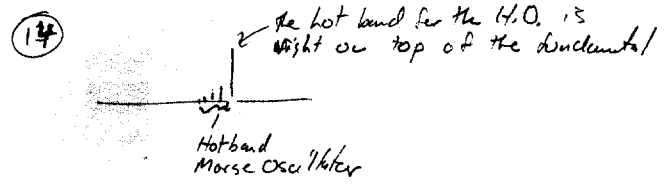 14
the hot band for the H.O. is
right on top of the fundamental
Hotband
Morse Oscillator